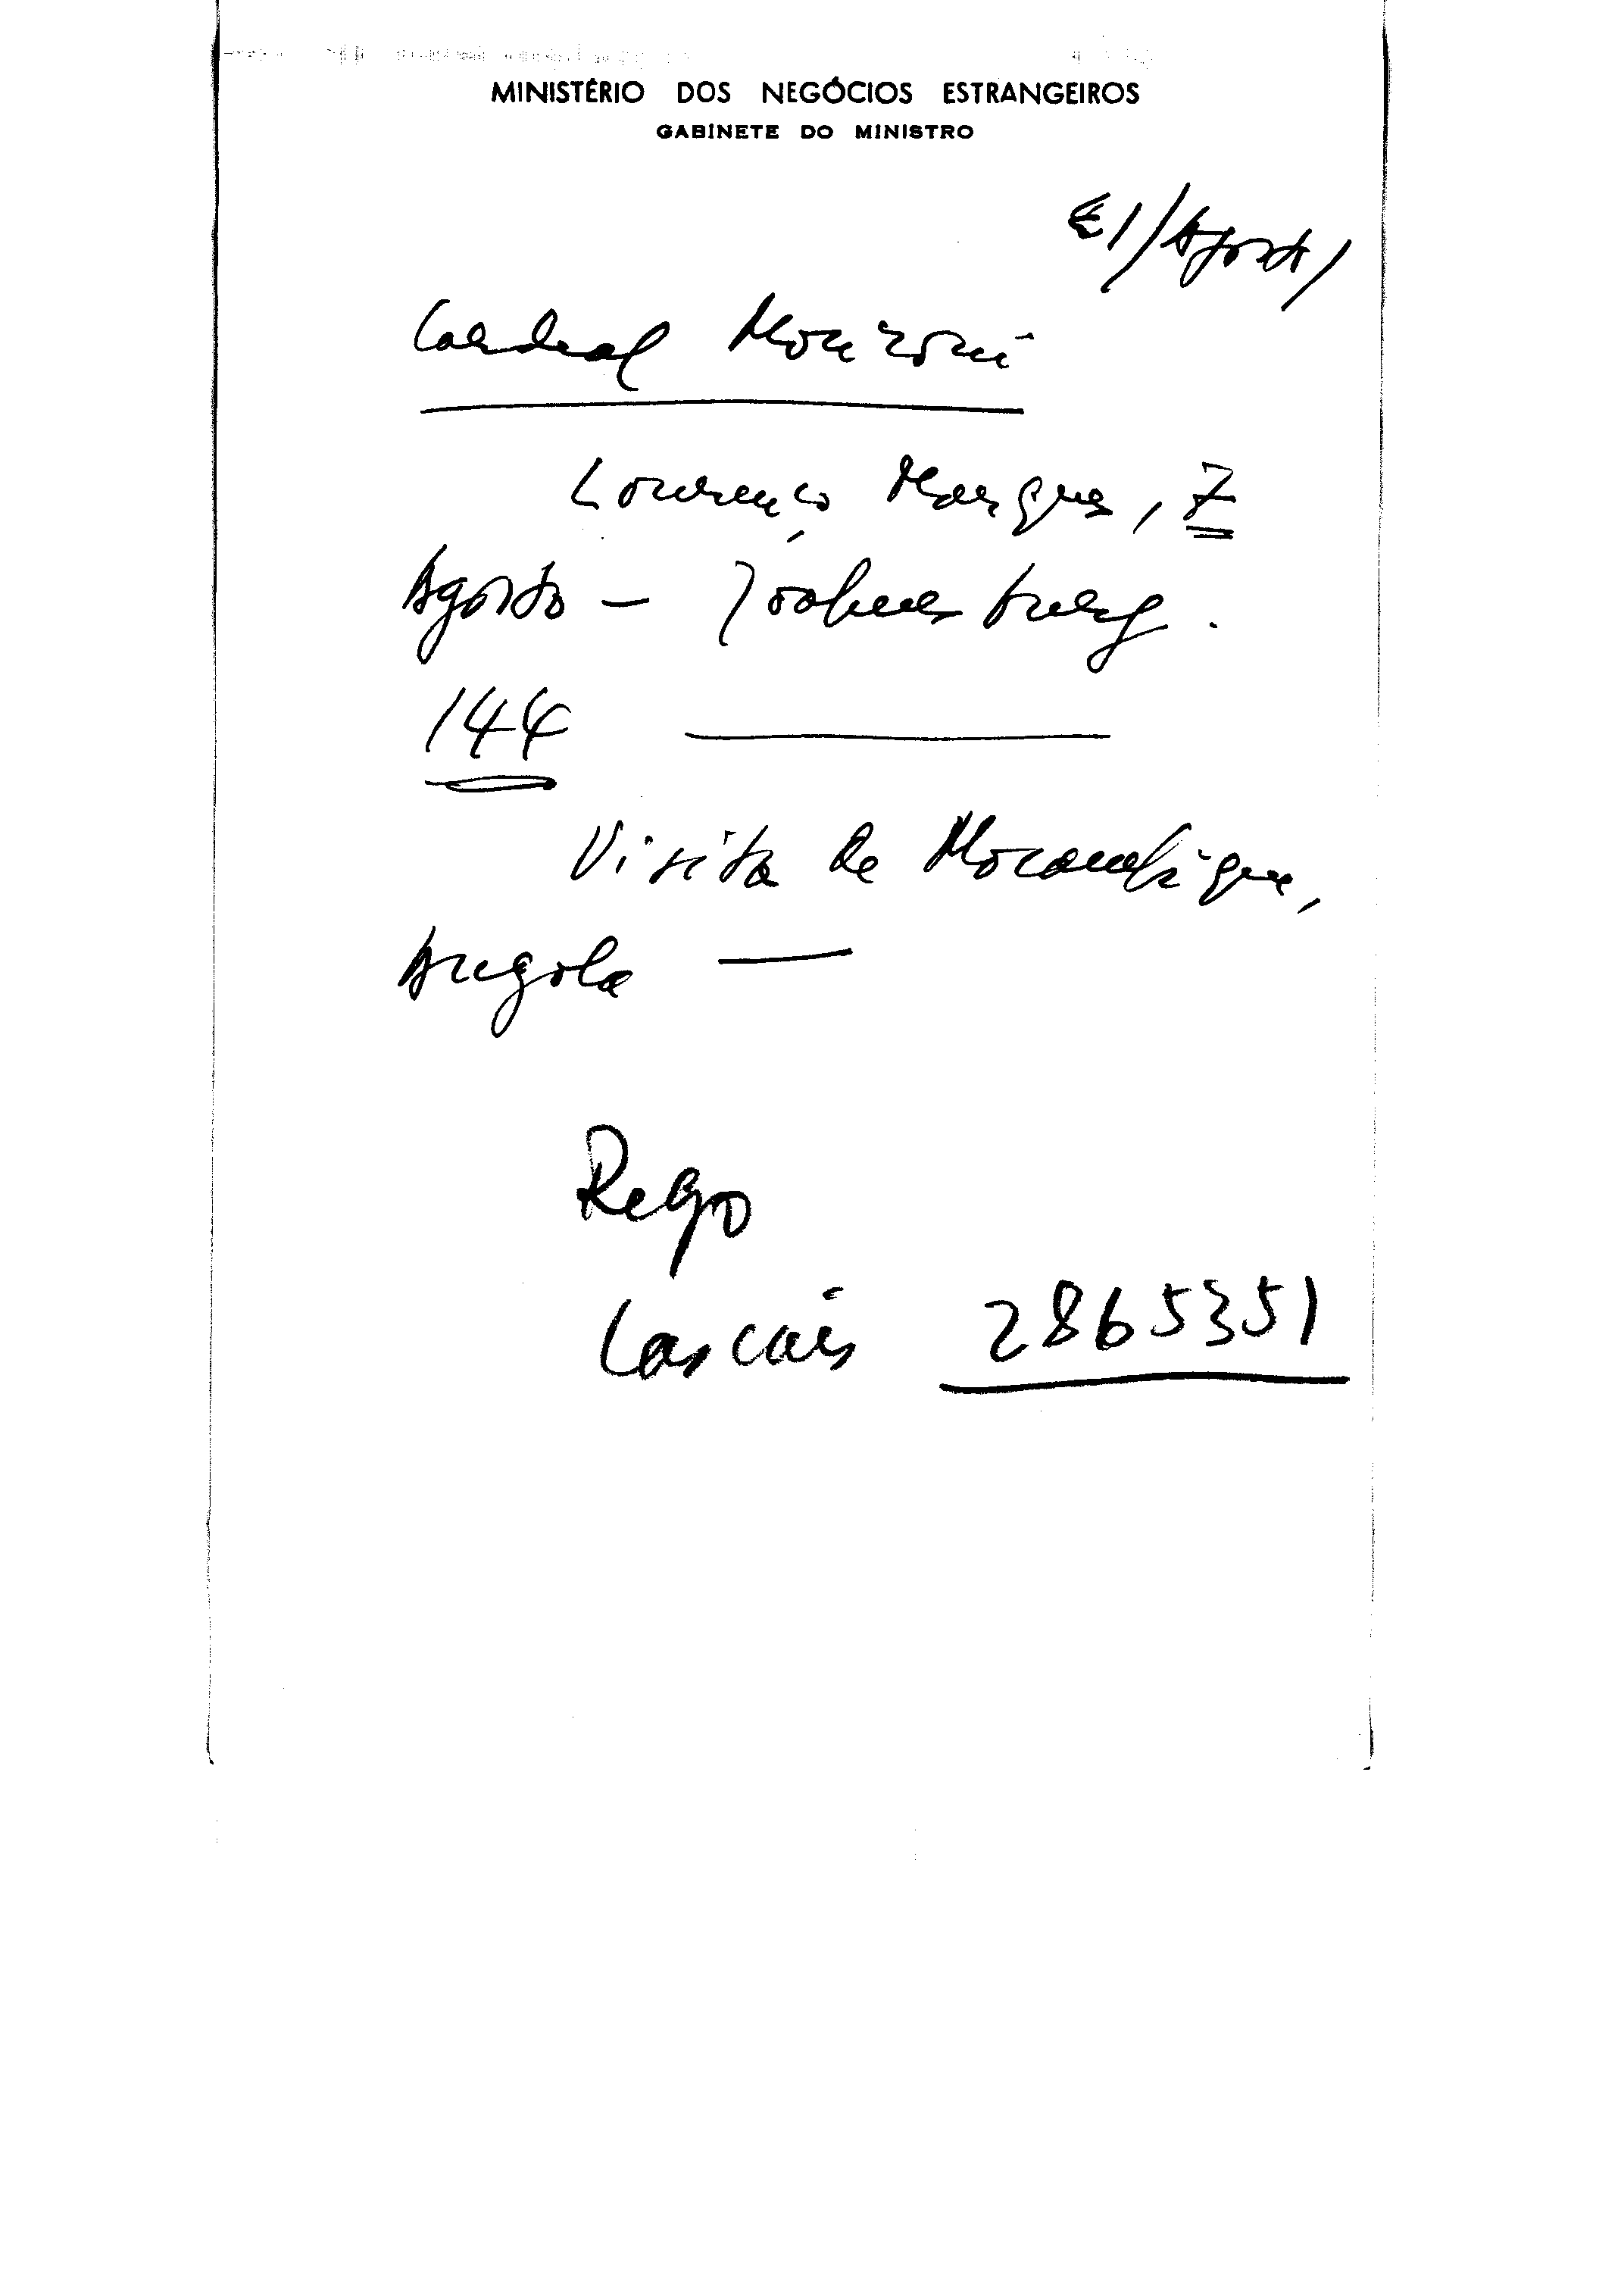 MINISTÉRIO DOS NEGÓCIOS ESTRANGEIROS
GABINETE DO MINISTRO
1/Agosto/
Cardeal Monzoni
Lourenço Marques, 7
Agosto — Joahnesburg.
144
Visita de Mocambique,
Angola —
Rego
Cascais 2865351